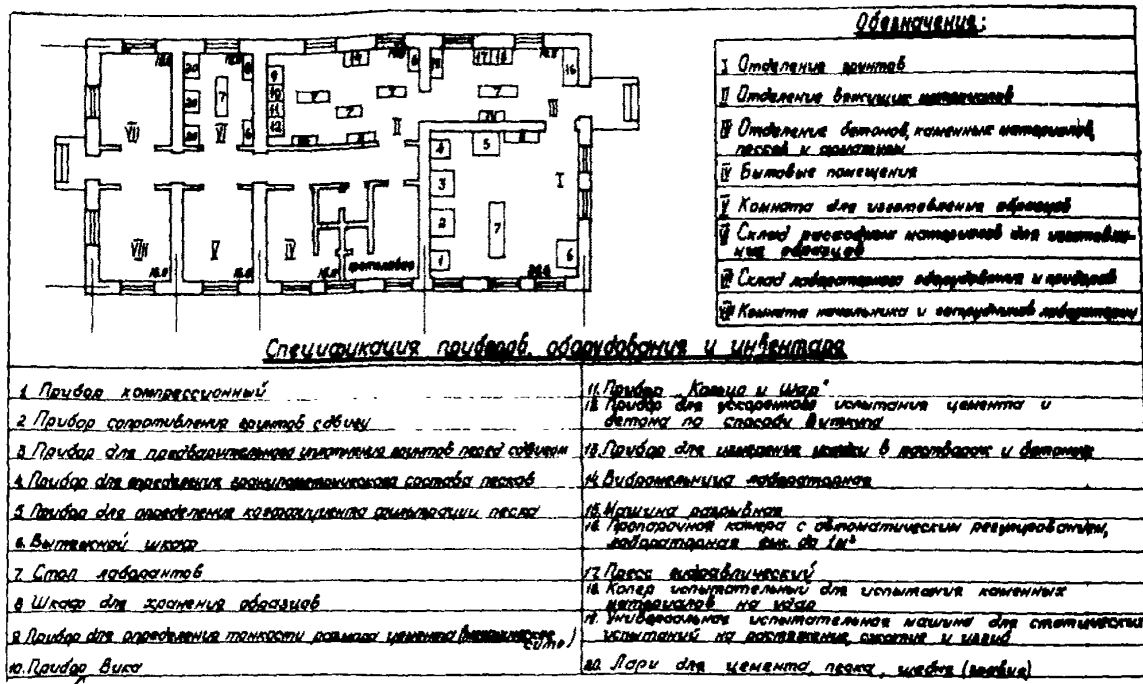 Обозначения:
I Отделение грунтов
II Отделение вяжущих материалов
III Отделение бетонов, каменных материалов,
песков и арматуры
IV Бытовые помещения
V Комната для изготовления образцов
VI Склад расходных материалов для изготовле-
ния образцов
VII Склад лабораторного оборудования и приборов
VIII Комната начальника и сотрудников лаборатории
20 8 9 14 6 19 17 18 16
20 7 10 7 7 7
VII 20 VI 6 11 12 7 II III
4 5 I
3
VIII V IV 2 7
1 6
Спецификация приборов, оборудования и инвентаря
1. Прибор компрессионный
2. Прибор сопротивления грунтов сдвигу
3. Прибор для предварительного уплотнения грунтов перед сдвигом
4. Прибор для определения гранулометрического состава песков
5. Прибор для определения коэффициента фильтрации песка
6. Вытяжной шкаф
7. Стол лаборантов
8. Шкаф для хранения образцов
9. Прибор для определения тонкости размола цемента (механическое
сито)
10. Прибор Вика
11. Прибор "Кольцо и шар"
12. Прибор для ускоренного испытания цемента и
бетона по способу
13. Прибор для измерения усадки в растворах и бетонах
14. Вибромельница лабораторная
15. Машина разрывная
16. Пропарочная камера с автоматическим регулированием,
лабораторная емк. до 1м³
17. Пресс гидравлический
18. Копер испытательный для испытания каменных
материалов на удар
19. Универсальная испытательная машина для статических
испытаний на растяжение, сжатие и изгиб
20. Лари для цемента, песка, щебня (гравия)